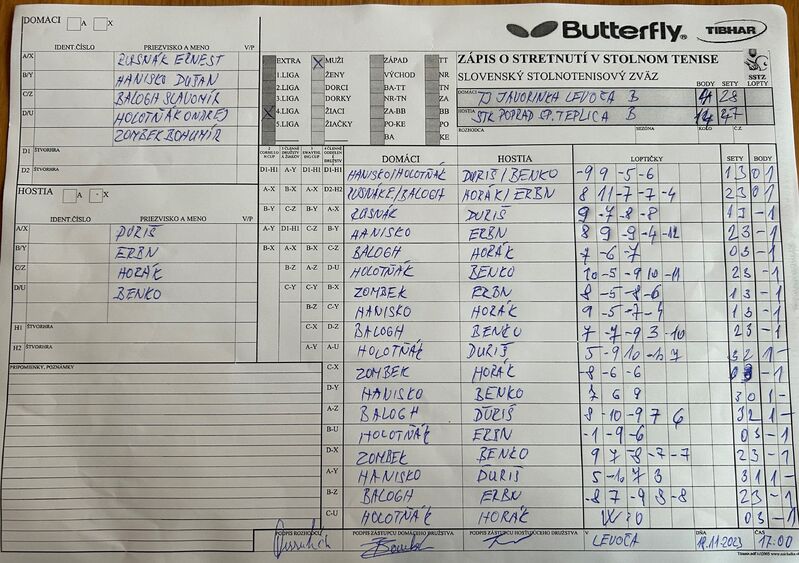 DOMÁCI A X
IDENT.ČÍSLO PRIEZVISKO A MENO V/P
A/X RUSNÁK ERNEST
B/Y HANISKO DUŠAN
C/Z BALOGH SLAVOMÍR
D/U HOLOTŇÁK ONDREJ
ZOMBEK BOHUMÍR
D1 ŠTVORHRA
D2 ŠTVORHRA
HOSTIA A X
IDENT.ČÍSLO PRIEZVISKO A MENO V/P
A/X ĎURIŠ
B/Y ERBN
C/Z HORÁK
D/U BENKO
H1 ŠTVORHRA
H2 ŠTVORHRA
PRIPOMIENKY, POZNÁMKY
Butterfly TIBHAR
EXTRA X MUŽI ZÁPAD TT
1.LIGA ŽENY VÝCHOD NR
2.LIGA DORCI BA-TT TN
3.LIGA DORKY NR-TN ZA
X 4.LIGA ŽIACI ZA-BB BB
5.LIGA ŽIAČKY PO-KE PO
BA KE
ZÁPIS O STRETNUTÍ V STOLNOM TENISE
SLOVENSKÝ STOLNOTENISOVÝ ZVÄZ
SSTZ
BODY SETY LOPTY
DOMÁCI TJ JAVORINKA LEVOČA B 4 28
HOSTIA STK POPRAD SP. TEPLICA B 14 47
ROZHODCA SEZÓNA KOLO Č.Z.
DOMÁCI HOSTIA LOPTIČKY SETY BODY
D1-H1 A-Y D1-H1 D1-H1 HANISKO/HOLOTŇÁK ĎURIŠ/BENKO -9 9 -5 -6 1 3 0 1
A-X B-X A-X D2-H2 RUSNÁK E/BALOGH HORÁK/ERBN 8 11 -7 -7 -4 2 3 0 1
B-Y C-Z B-Y A-X RUSNÁK ĎURIŠ 9 -7 -8 -8 1 3 - 1
A-Y D1-H1 C-Z B-Y HANISKO ERBN 8 9 -9 -4 -12 2 3 - 1
B-X A-X B-X C-Z BALOGH HORÁK -7 -6 -7 0 3 - 1
B-Z A-Z D-U HOLOTŇÁK BENKO 10 -5 -9 10 -11 2 3 - 1
C-Y C-Y B-X ZOMBEK ERBN 8 -5 -8 -6 1 3 - 1
B-Z C-Y HANISKO HORÁK 9 -5 -7 -4 1 3 - 1
C-X D-Z BALOGH BENKO 7 -7 -9 3 -10 2 3 - 1
A-Y A-U HOLOTŇÁK ĎURIŠ 5 -9 10 3 2 1 -
C-X ZOMBEK HORÁK -8 -6 -6 0 3 - 1
D-Y HANISKO BENKO 7 6 9 3 0 1 -
A-Z BALOGH ĎURIŠ 8 -10 -9 7 6 3 2 1 -
B-U HOLOTŇÁK ERBN -1 -9 -6 0 3 - 1
D-X ZOMBEK BENKO 9 7 -8 -7 -7 2 3 - 1
A-Y HANISKO ĎURIŠ 5 -10 7 3 3 1 1 -
B-Z BALOGH ERBN -8 7 -9 8 -8 2 3 - 1
C-U HOLOTŇÁK HORÁK 0 3 - 1
PODPIS ROZHODCU PODPIS ZÁSTUPCU DOMÁCEHO DRUŽSTVA PODPIS ZÁSTUPCU HOSŤUJÚCEHO DRUŽSTVA V LEVOČA DŇA 18.11.2023 ČAS 17:00